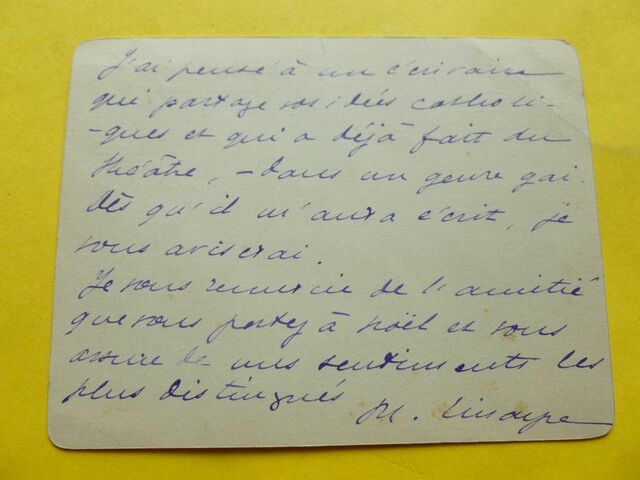 J'ai pensé à un écrivain
qui partage vos idés catholi-
-ques et qui a déjà fait du
théâtre, - dans un genre gai.
Dès qu'il m'aura écrit, je
vous aviserai.
Je vous remercie de l'amitié
que vous portez à Noël et vous
assure de mes sentiments les
plus distingués
M.